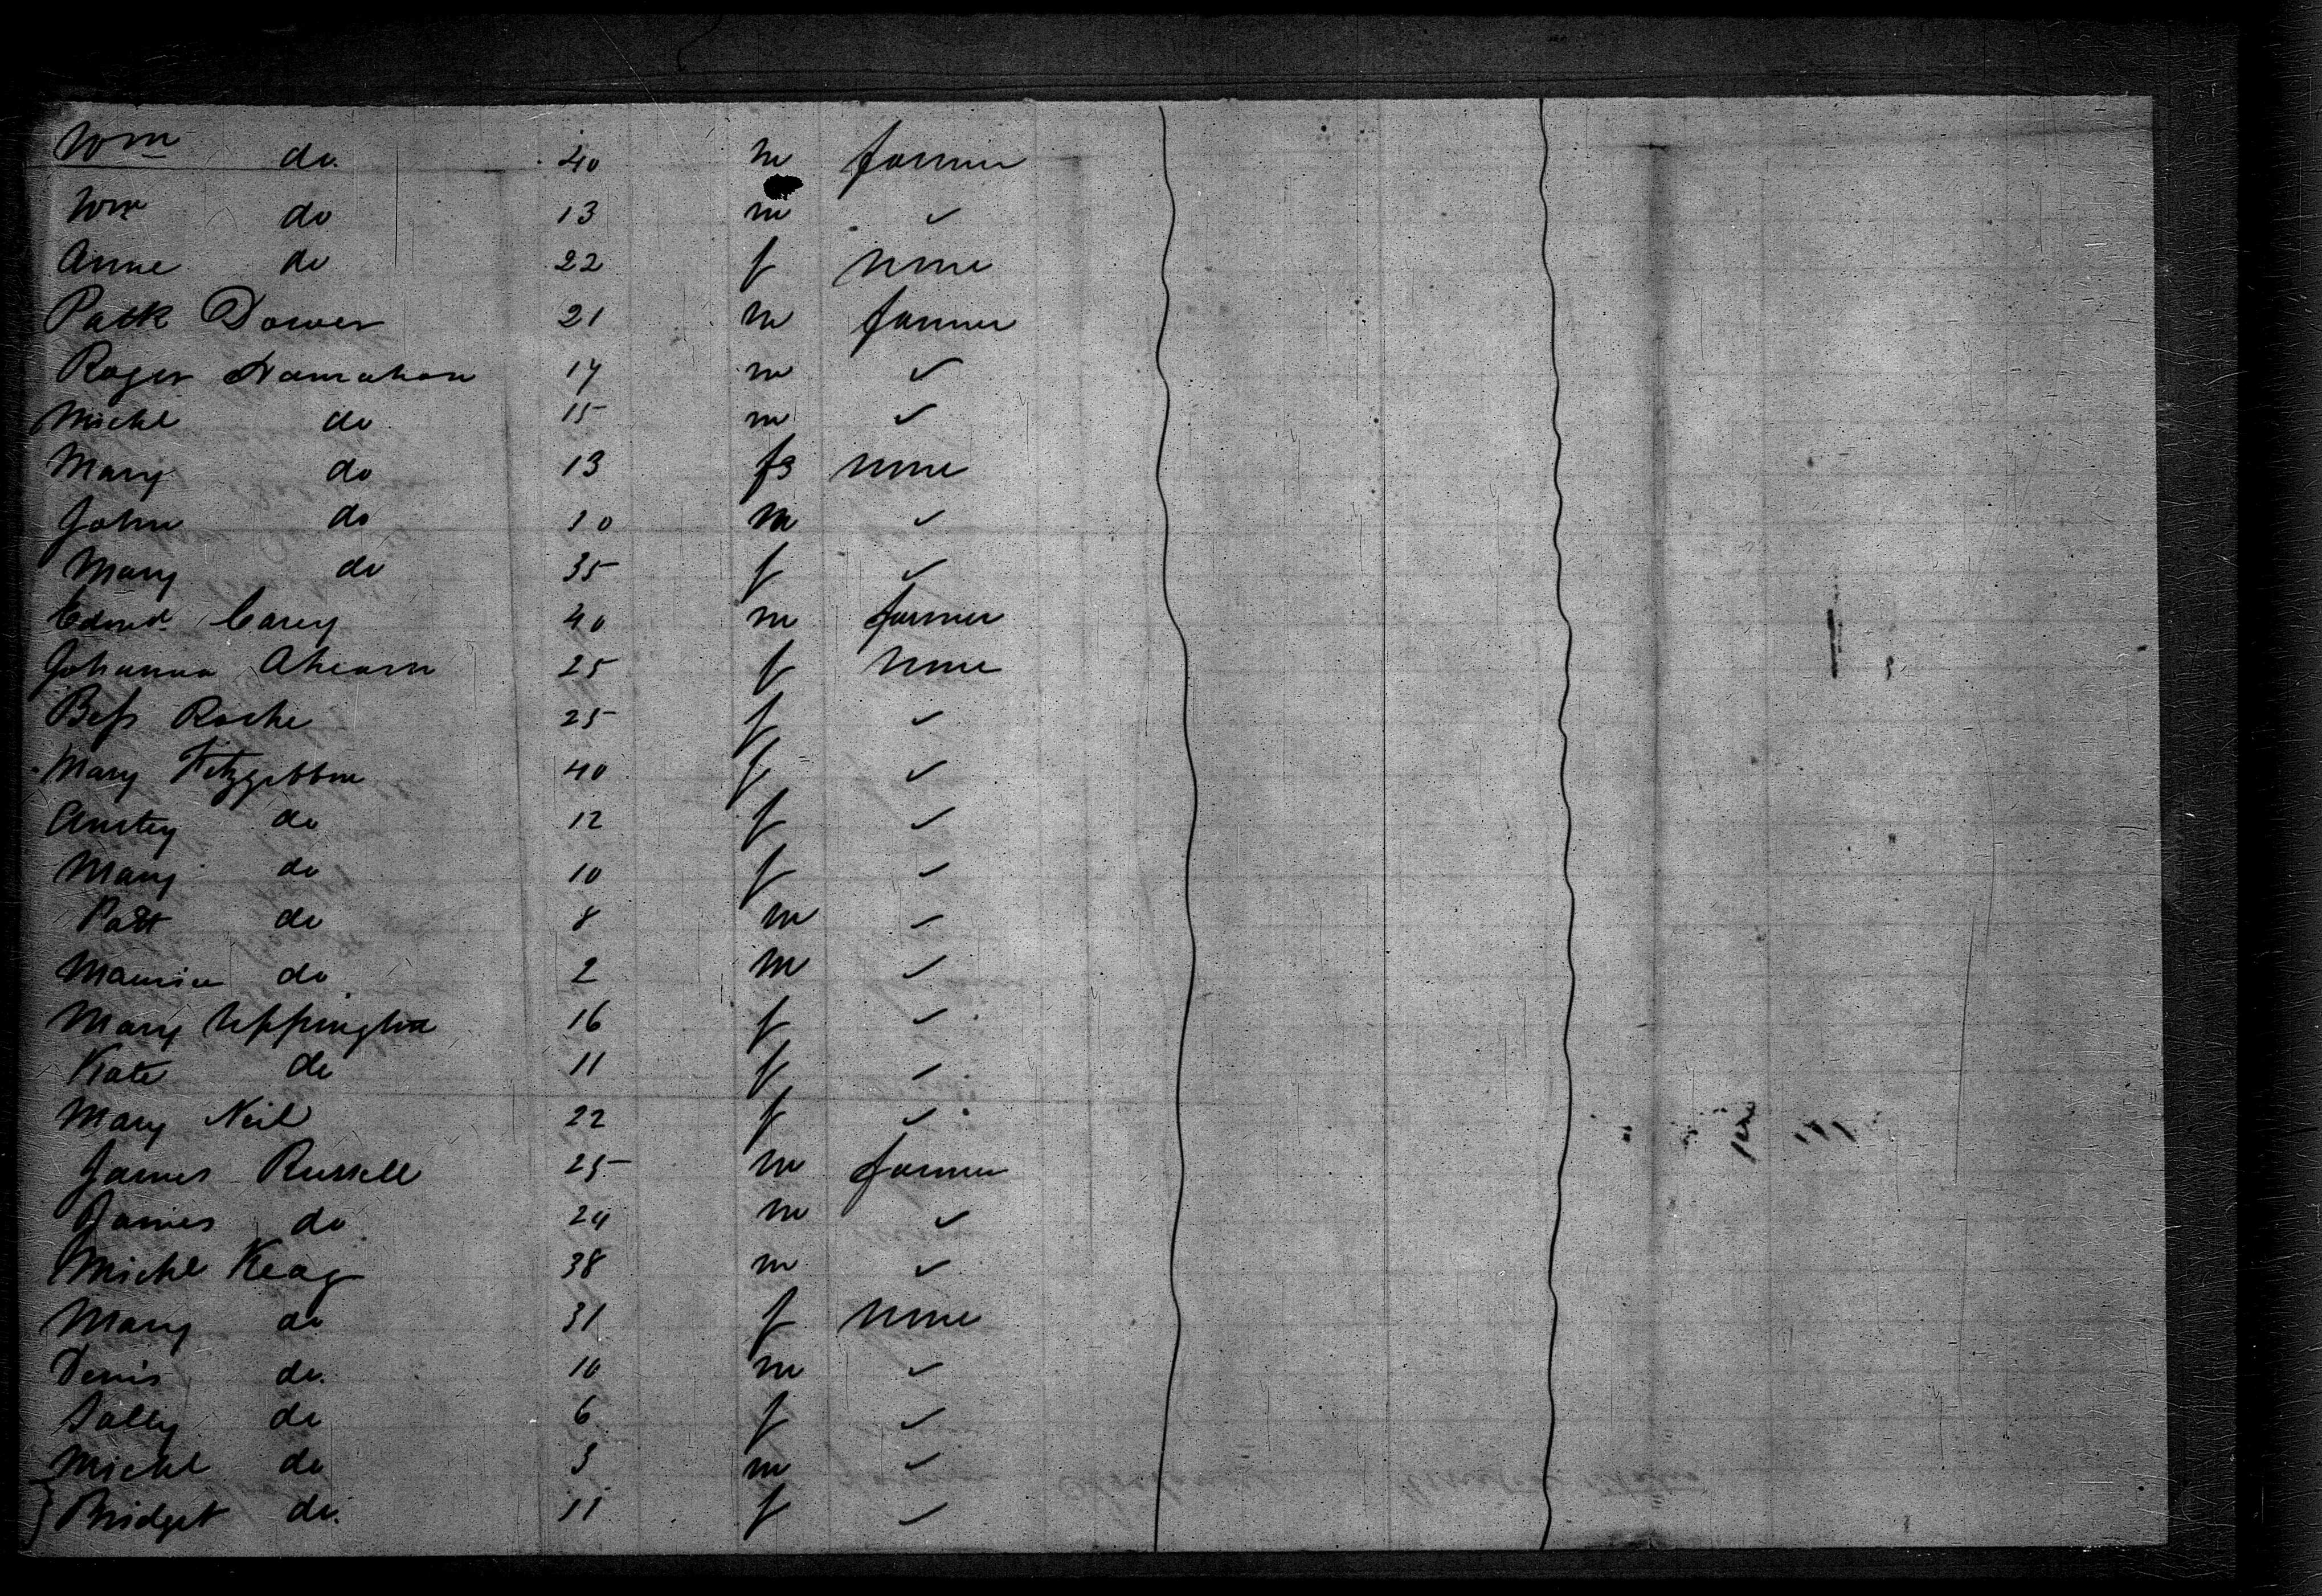 Wm do. 40 m farmer
Wm do 13 m ✓
Anne do 22 f none
Patk Dower 21 m farmer
Roger 17 m ✓
Michl do 15 m ✓
Mary do 13 f none
John do 10 m ✓
Mary do 35 f ✓
Edmd. Carey 40 m farmer
Johanna Ahearn 25 f none
Bess Roche 25 f ✓
Mary Fitzgibbon 40 f ✓
Anstey do 12 f ✓
Mary do 10 f ✓
Patt do 8 m ✓
Maurice do 2 m ✓
Mary Uppington 16 f ✓
Kate do 11 f ✓
Mary Neil 22 f ✓
James Russell 25 m farmer
James do 24 m ✓
Michl Keag 38 m ✓
Mary do 31 f none
Denis do. 10 m ✓
Sally do 6 f ✓
Michl do 3 m ✓
Bridget do. 11 f ✓